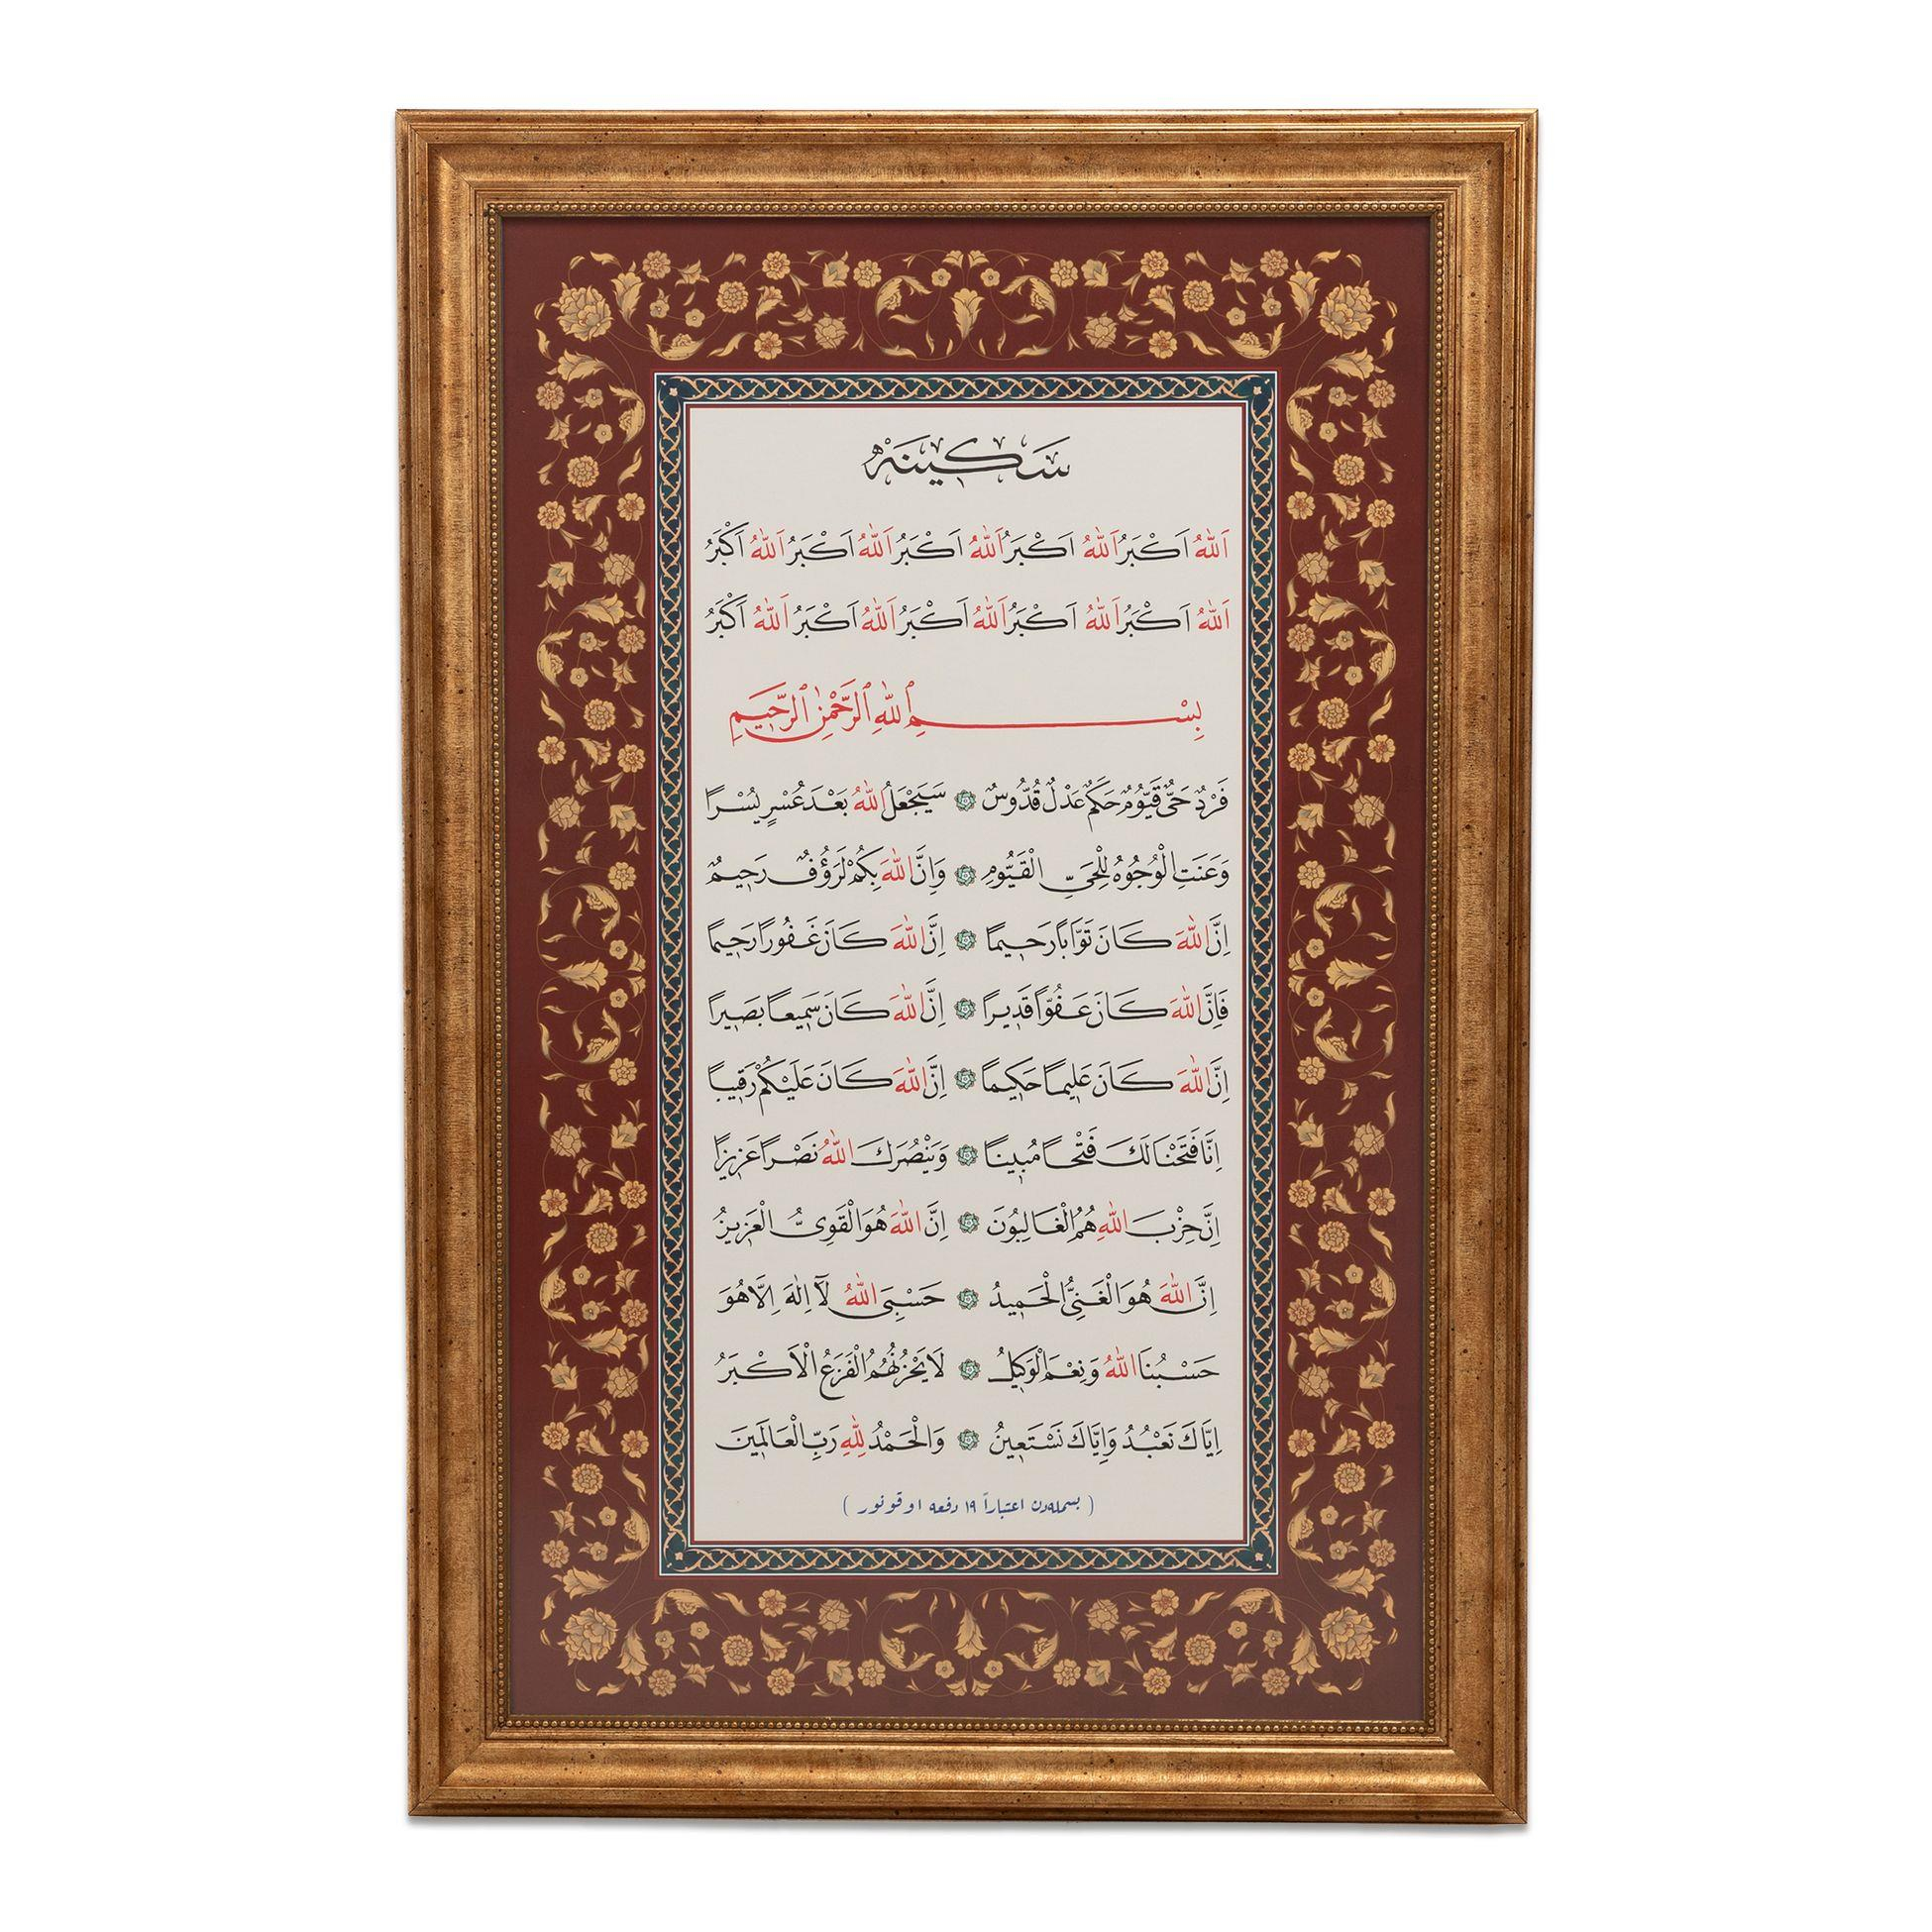 سكينه
اَللهُ اَكْبَرُ اَللهُ اَكْبَرُ اَللهُ اَكْبَرُ اَللهُ اَكْبَرُ اَللهُ اَكْبَرُ
اَللهُ اَكْبَرُ اَللهُ اَكْبَرُ اَللهُ اَكْبَرُ اَللهُ اَكْبَرُ اَللهُ اَكْبَرُ
بِسْمِ اللهِ الرَّحْمٰنِ الرَّحِيمِ
فَرْدٌ حَىٌّ قَيُّومٌ حَكَمٌ عَدْلٌ قُدُّوسٌ سَيَجْعَلُ اللهُ بَعْدَ عُسْرٍ يُسْرًا
وَعَنَتِ الْوُجُوهُ لِلْحَىِّ الْقَيُّومِ وَاِنَّ اللهَ بِكُمْ لَرَؤُفٌ رَحِيمٌ
اِنَّ اللهَ كَانَ تَوَّابًا رَحِيمًا اِنَّ اللهَ كَانَ غَفُورًا رَحِيمًا
فَاِنَّ اللهَ كَانَ عَفُوًّا قَدِيرًا اِنَّ اللهَ كَانَ سَمِيعًا بَصِيرًا
اِنَّ اللهَ كَانَ عَلِيمًا حَكِيمًا اِنَّ اللهَ كَانَ عَلَيْكُمْ رَقِيبًا
اِنَّا فَتَحْنَا لَكَ فَتْحًا مُبِينًا وَيَنْصُرَكَ اللهُ نَصْرًا عَزِيزًا
اِنَّ حِزْبَ اللهِ هُمُ الْغَالِبُونَ اِنَّ اللهَ هُوَ الْقَوِىُّ الْعَزِيزُ
اِنَّ اللهَ هُوَ الْغَنِىُّ الْحَمِيدُ حَسْبِىَ اللهُ لَٓا اِلٰهَ اِلَّا هُوَ
حَسْبُنَا اللهُ وَنِعْمَ الْوَكِيلُ لَا يَحْزُنُهُمُ الْفَزَعُ الْاَكْبَرُ
اِيَّاكَ نَعْبُدُ وَاِيَّاكَ نَسْتَعِينُ وَالْحَمْدُ لِلّٰهِ رَبِّ الْعَالَمِينَ
( بسمله‌دن اعتباراً ١٩ دفعه اوقونور )